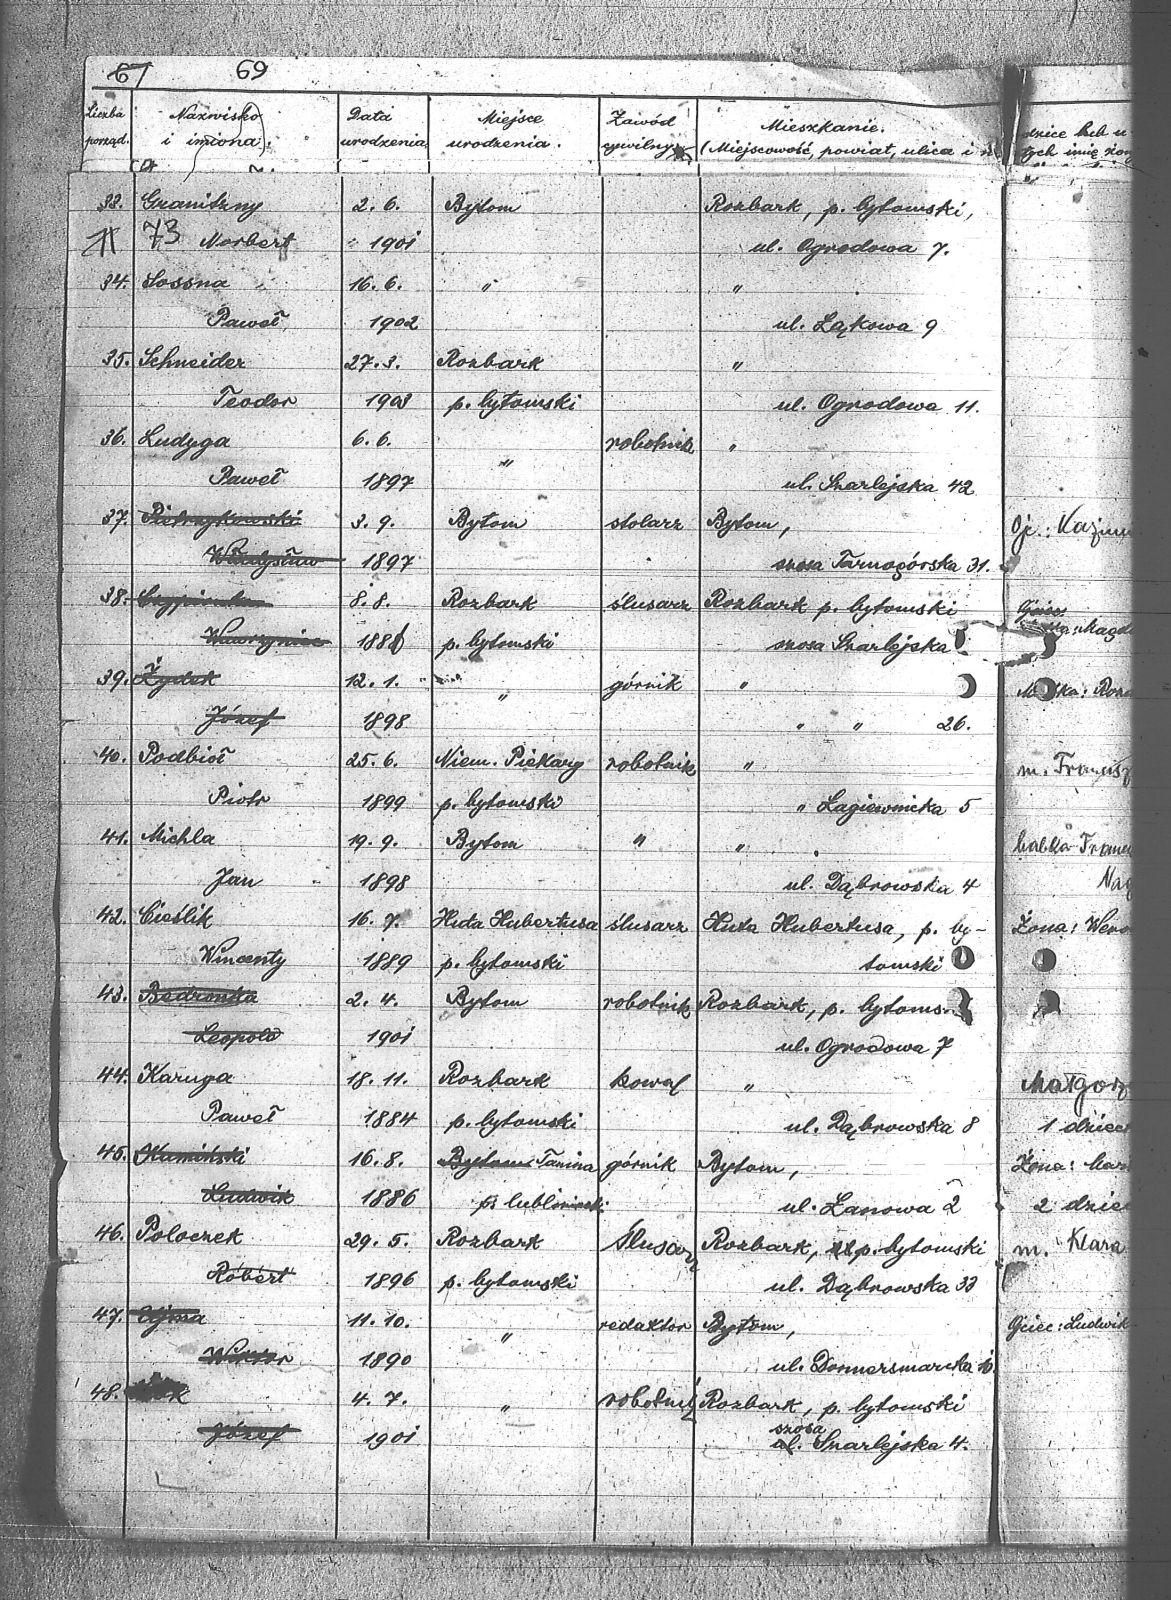 67 69
Liczba porząd. Nazwisko i imiona. Data urodzenia Miejsce urodzenia. Zawód cywilny Mieszkanie. (Miejscowość, powiat, ulica i
33. Granitzny 2. 6. Bytom Rozbark, p. bytomski,
73 Norbert 1901 ul. Ogrodowa 7.
34. Sossna 16. 6. " "
Paweł 1902 ul. Łąkowa 9
35. Schneider 27. 3. Rozbark "
Teodor 1903 p. bytomski ul. Ogrodowa 11.
36. Ludyga 6. 6. " robotnik "
Paweł 1897 ul. Szarlejska 42
37. Pietrzykowski 3. 9. Bytom stolarz Bytom, Oj.:
Władysław 1897 szosa Tarnogórska 31.
38. 8. 8. Rozbark ślusarz Rozbark p. bytomski
Wawrzyniec 1886 p. bytomski szosa Szarlejska
39. Żydek 12. 1. " górnik "
Józef 1898 " " 26.
40. Podbioł 25. 6. Niem. Piekary robotnik " m.
Piotr 1899 p. bytomski " Łagiewnicka 5
41. Michla 19. 9. Bytom " " babka
Jan 1898 ul. Dąbrowska 4
42. Cieślik 16. 7. Huta Hubertusa ślusarz Huta Hubertusa, p. by- Żona:
Wincenty 1889 p. bytomski tomski
43. Bedronka 2. 4. Bytom robotnik Rozbark, p. bytoms
Leopold 1901 ul. Ogrodowa 7
44. Karuga 18. 11. Rozbark kowal "
Paweł 1884 p. bytomski ul. Dąbrowska 8 1
45. Kamiński 16. 8. Bytom górnik Bytom, Żona:
Ludwik 1886 p. lubliniecki ul. Łanowa 2 2
46. Poloczek 29. 5. Rozbark Ślusarz Rozbark, p. bytomski m. Klara
Robert 1896 p. bytomski ul. Dąbrowska 33
47. Ojma 11. 10. " redaktor Bytom, Ojciec: Ludwik
Wiktor 1890 ul. Donnersmarcka
48. 4. 7. " robotnik Rozbark, p. bytomski
Józef 1901 szosa
ul. Szarlejska 4.